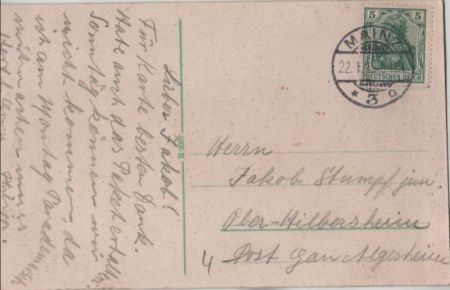 Lieber Jakob!
Für Karte besten Dank.
Habe auch das Paket erhalten.
Sonntag können wir
nicht kommen, da
ich am Montag
mitmachen muss
5
5
DEUTSCHES REICH
MAINZ
22.
* 3 o
Herrn
Jakob Stumpf jun.
Ober-Hilbersheim
Post Gau Algesheim
4